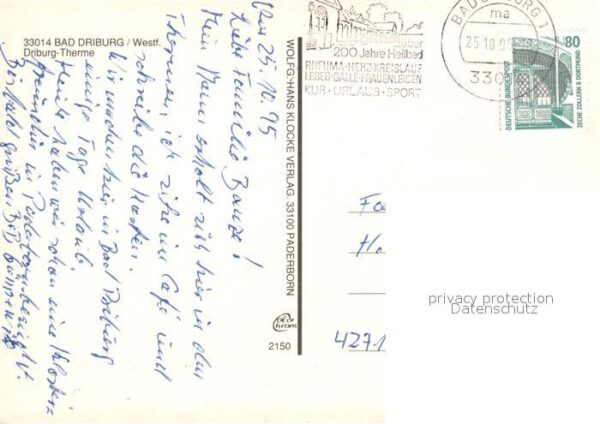 33014 BAD DRIBURG / Westf.
Driburg-Therme
Den 25.10.95
Liebe Familie
Mein Mann erholt sich hier in den
Thermen, ich sitze im Café und
schreibe die Karten.
Wir machen hier in Bad Driburg
einige Tage Urlaub
Heute haben wir schon eine
in Paderborn
Bis bald grüßen
WOLFG.-HANS KLOCKE VERLAG 33100 PADERBORN
2150
über
200 Jahre Heilbad
RHEUMA-HERZ-KREISLAUF
LEBER-GALLE-FRAUENLEIDEN
KUR - URLAUB - SPORT
BAD DRIBURG 1
ma
25.10.95
330
80
DEUTSCHE BUNDESPOST
ZECHE ZOLLERN II DORTMUND
4271
privacy protection
Datenschutz